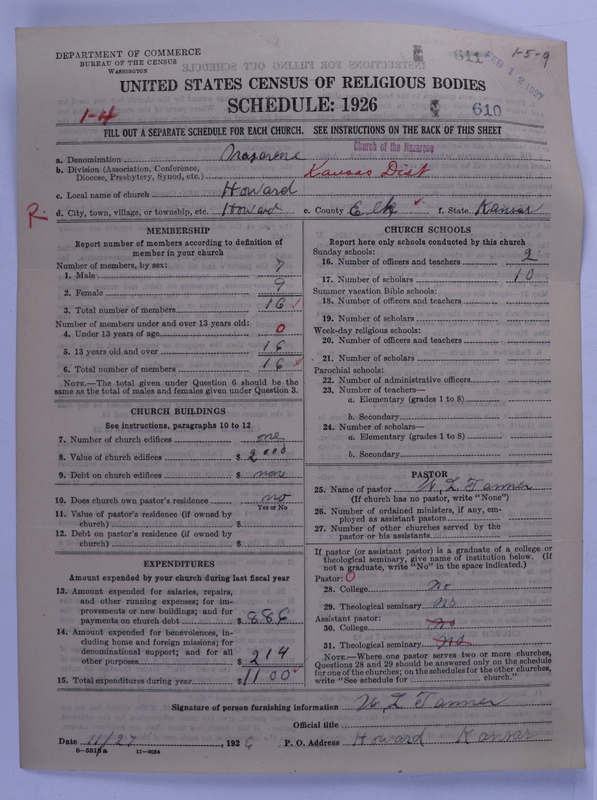 DEPARTMENT OF COMMERCE
BUREAU OF THE CENSUS
WASHINGTON
611
1-5-9
FEB 12 1927
UNITED STATES CENSUS OF RELIGIOUS BODIES
SCHEDULE: 1926
1-4
610
FILL OUT A SEPARATE SCHEDULE FOR EACH CHURCH. SEE INSTRUCTIONS ON THE BACK OF THIS SHEET
Church of the Nazarene
a. Denomination Nazarene
b. Division (Association, Conference, Diocese, Presbytery, Synod, etc.) Kansas Dist
c. Local name of church Howard
R. d. City, town, village, or township, etc. Howard e. County Elk f. State Kansas
MEMBERSHIP
Report number of members according to definition of
member in your church
Number of members, by sex:
1. Male 7
2. Female 9
3. Total number of members 16
Number of members under and over 13 years old:
4. Under 13 years of age 0
5. 13 years old and over 16
6. Total number of members 16
NOTE.—The total given under Question 6 should be
same as the total of males and females given under Question 3.
CHURCH BUILDINGS
See instructions, paragraphs 10 to 12
7. Number of church edifices one
8. Value of church edifices $ 2000
9. Debt on church edifices $ none
10. Does church own pastor's residence no
Yes or No
11. Value of pastor's residence (if owned by
church) $
12. Debt on pastor's residence (if owned by
church) $
EXPENDITURES
Amount expended by your church during last fiscal year
13. Amount expended for salaries, repairs,
and other running expenses; for im-
provements or new buildings; and for
payments on church debt $ 886
14. Amount expended for benevolences, in-
cluding home and foreign missions; for
denominational support; and for all
other purposes $ 214
15. Total expenditures during year $ 1100
CHURCH SCHOOLS
Report here only schools conducted by this church
Sunday schools:
16. Number of officers and teachers 2
17. Number of scholars 10
Summer vacation Bible schools:
18. Number of officers and teachers
19. Number of scholars
Week-day religious schools:
20. Number of officers and teachers
21. Number of scholars
Parochial schools:
22. Number of administrative officers
23. Number of teachers—
a. Elementary (grades 1 to 8)
b. Secondary
24. Number of scholars—
a. Elementary (grades 1 to 8)
b. Secondary
PASTOR
25. Name of pastor W. L. Tanner
(If church has no pastor, write "None")
26. Number of ordained ministers, if any, em-
ployed as assistant pastors
27. Number of other churches served by the
pastor or his assistants
If pastor (or assistant pastor) is a graduate of a college or
theological seminary, give name of institution below. (If
not a graduate, write "No" in the space indicated.)
Pastor: 0
28. College No
29. Theological seminary No
Assistant pastor:
30. College No
31. Theological seminary No
NOTE.—Where one pastor serves two or more churches,
Questions 28 and 29 should be answered only on the schedule
for one of the churches; on the schedules for the other churches,
write "See schedule for church."
Signature of person furnishing information W L Tanner
Official title
Date 11/27, 1926 P. O. Address Howard Kansas
11—9054